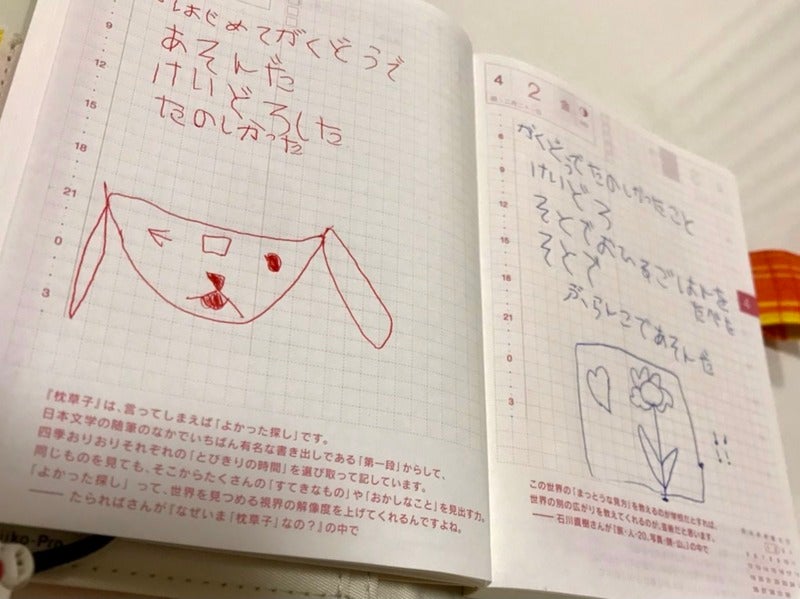 はじめてがくどうで
あそんだ
けいどろした
たのしかった
9
12
15
18
21
0
3
『枕草子』は、言ってしまえば「よかった探し」です。
日本文学の随筆のなかでいちばん有名な書き出しである「第一段」からして、
四季おりおりそれぞれの「とびきりの時間」を選び取って記しています。
同じものを見ても、そこからたくさんの「すてきなもの」や「おかしなこと」を見出す力。
「よかった探し」って、世界を見つめる視界の解像度を上げてくれるんですよね。
——たらればさんが『なぜいま「枕草子」なの？』の中で
uko-Pro
4 2 金
がくどうでたのしかったこと
けいどろ
そとでおひるごはんを
たべを
そとで
ぶらんこであそんだ
!!
6
9
12
15
18
21
0
3
4
この世界の「まっとうな見方」を教えるのが学校だとすれば、
世界の別の広がりを教えてくれるのが、芸術だと思います。
——石川直樹さんが『旅・人・20。写真・